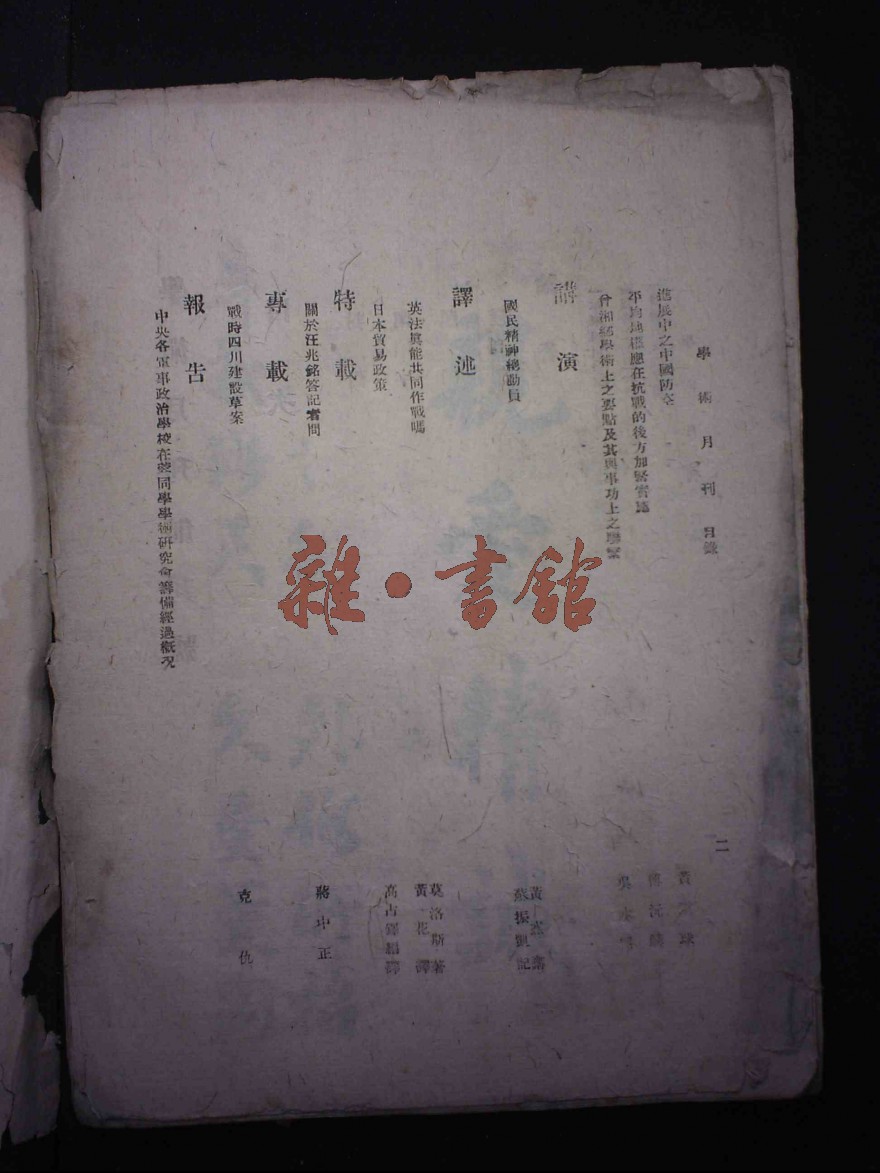 學術月刊 目錄
二
進展中之中國防空
黃 球
平均地權應在抗戰的後方加緊實施
曾湘鄉學術上之要點及其與事功上之聯繫
吳
講演
國民精神總動員
黃 講
蔡振 記
譯述
英法真能共同作戰嗎
莫洛斯著
黃一花譯
日本貿易政策
高占 編譯
特載
關於汪兆銘答記者問
蔣中正
專載
戰時四川建設草案
克仇
報告
中央各軍事政治學校在蓉同學學術研究會籌備經過概况
雜·書館